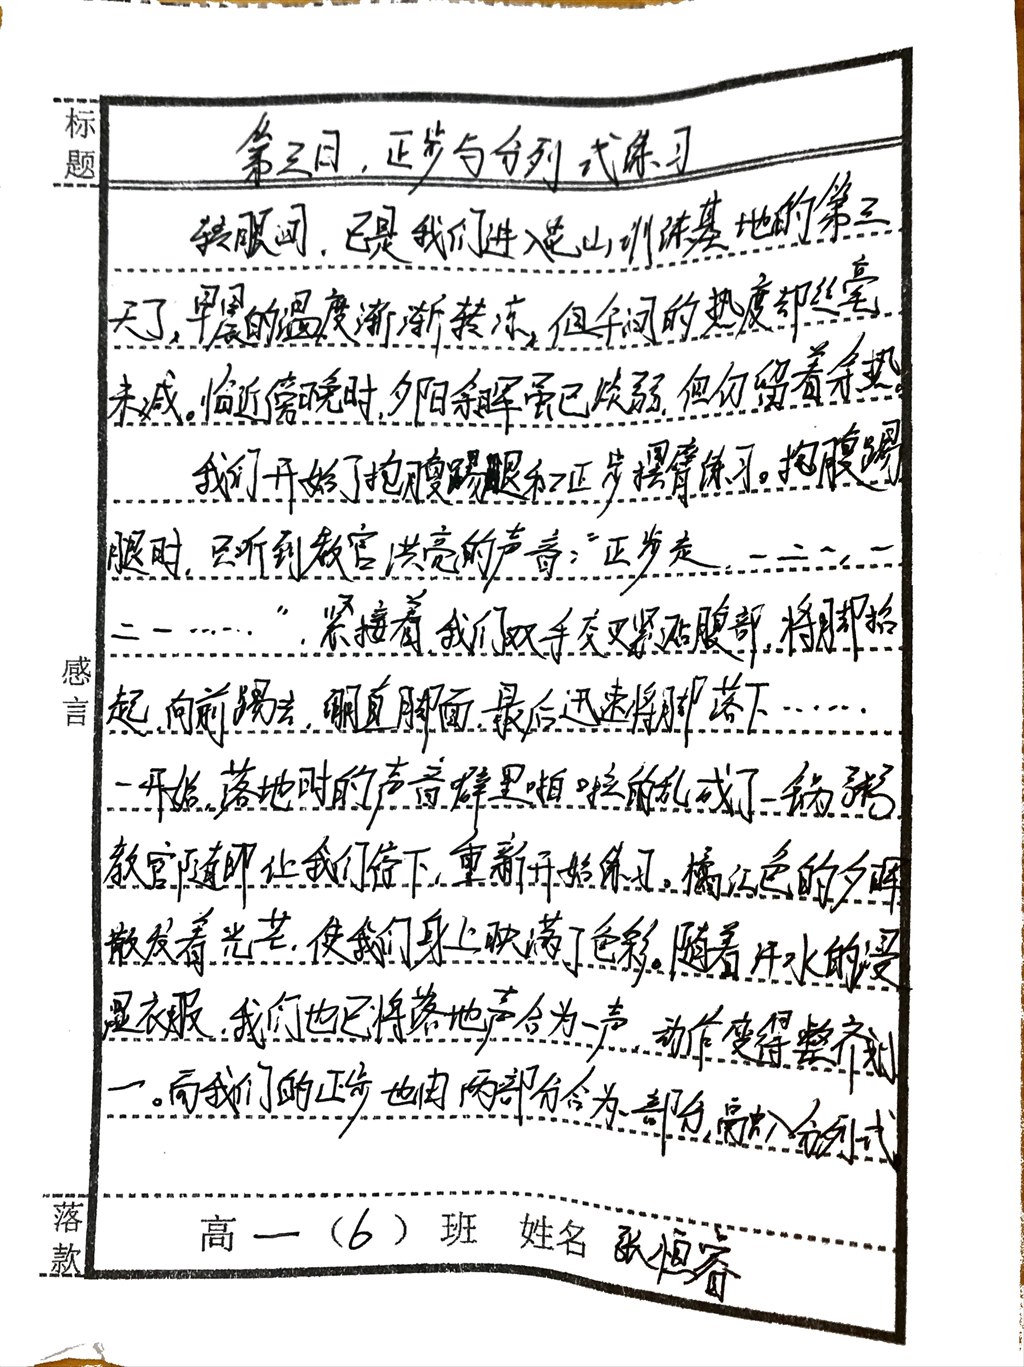 标题
第三日，正步与分列式练习
转眼间，已是我们进入苍山训练基地的第三
天了，早晨的温度渐渐转凉，但午间的热度却丝毫
未减。临近傍晚时，夕阳余晖虽已炊弱，但仍留着余热。
我们开始了抱腹踢腿和正步摆臂练习。抱腹踢
腿时，只听到教官洪亮的声音：“正步走，一二一，一
二一……”，紧接着，我们双手交叉紧贴腹部，将脚抬
起，向前踢去，绷直脚面，最后迅速将脚落下……
一开始，落地时的声音噼里啪啦的乱成了一锅粥
教官随即让我们停下，重新开始练习。橘红色的夕晖
散发着光芒，使我们身上映满了色彩。随着汗水的浸
湿衣服，我们也已将落地声合为一声，动作变得整齐划
一。而我们的正步也由两部分合为一部分，融入分列式。
感言
落款
高一（6）班 姓名 张恒睿